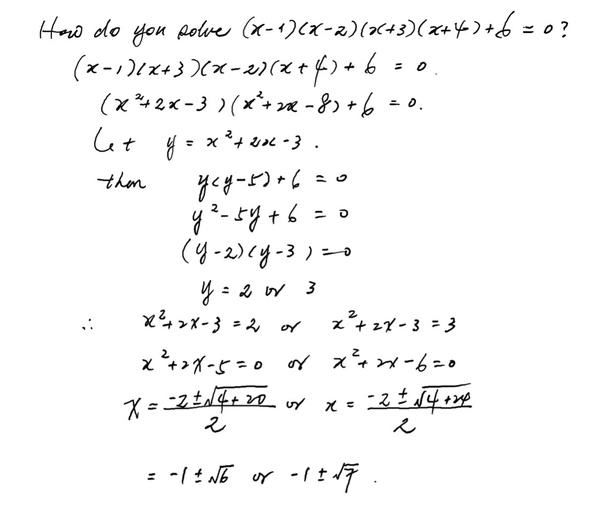 How do you solve (x-1)(x-2)(x+3)(x+4)+6 = 0?
(x-1)(x+3)(x-2)(x+4)+6 = 0.
(x²+2x-3)(x²+2x-8)+6 = 0.
Let y = x²+2x-3.
then y(y-5)+6 = 0
y²-5y+6 = 0
(y-2)(y-3)=0
y = 2 or 3
∴ x²+2x-3 = 2 or x²+2x-3 = 3
x²+2x-5=0 or x²+2x-6=0
x = (-2±√(4+20))/2 or x = (-2±√(4+24))/2
= -1±√6 or -1±√7.